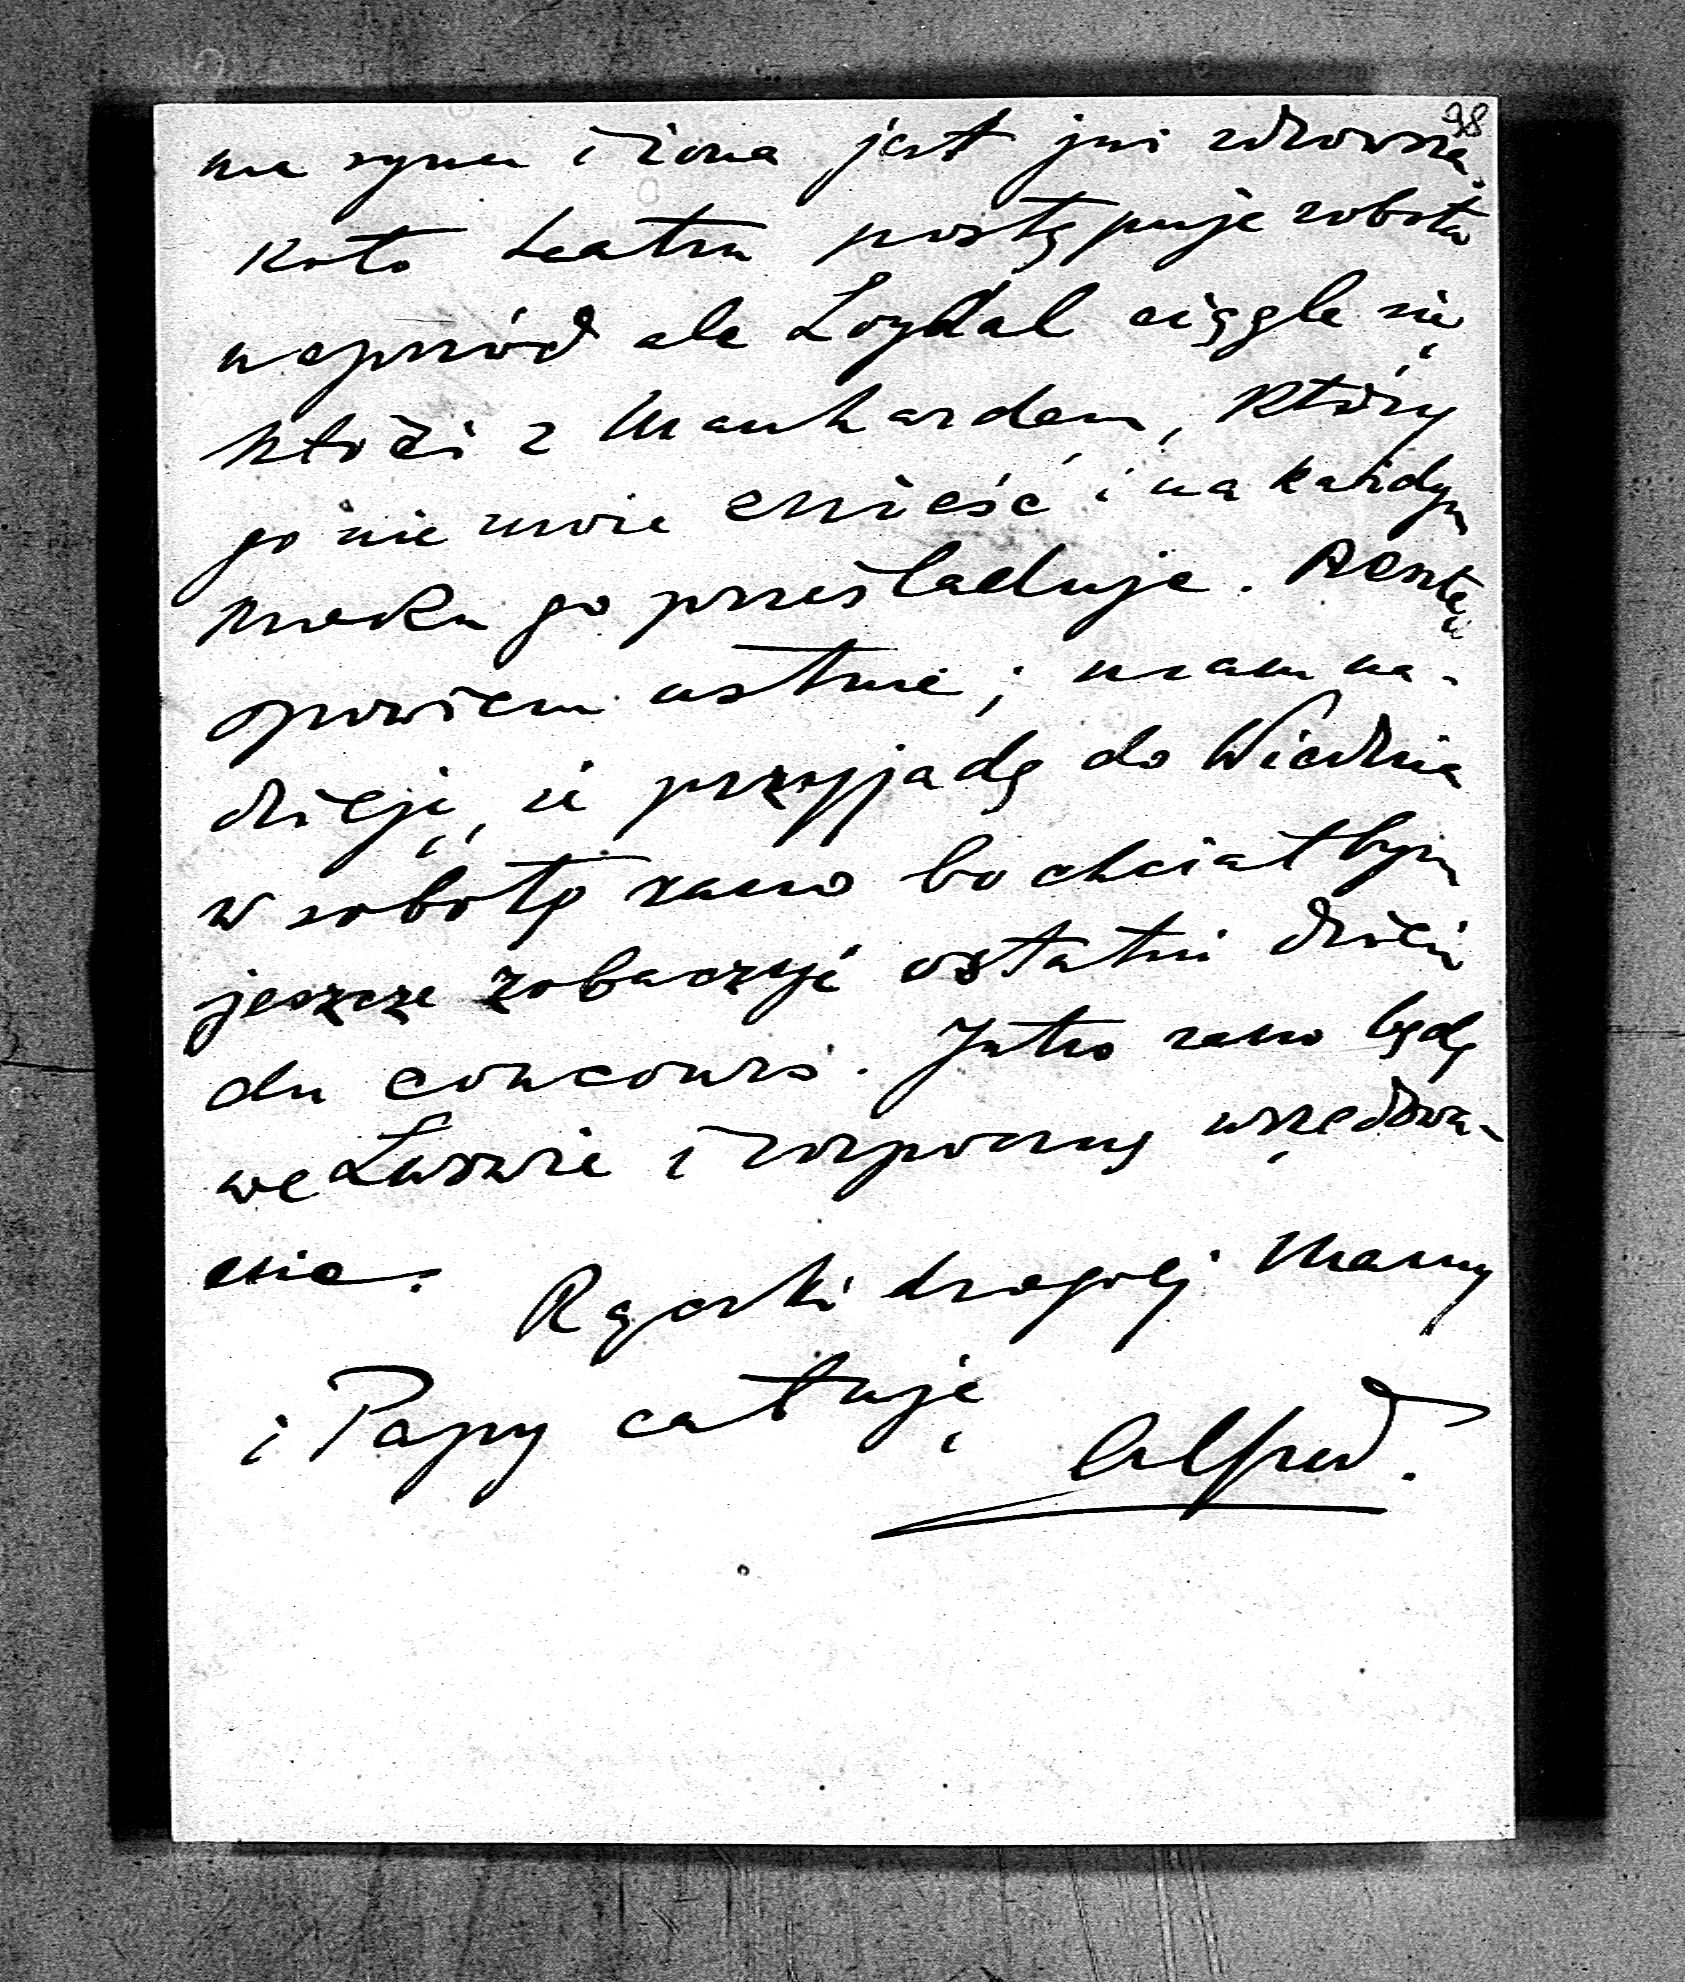 98
ma syna i żona jest już zdrowsza.
Koło teatru postępuje robota
naprzód ale Loydal ciągle się
kłóci z Manhardem, który
go nie może znieść i na każdym
kroku go prześladuje. Resztę
opowiem ustnie; mam na-
dzieję, że przyjadę do Wiednia
w sobotę rano bo chciałbym
jeszcze zobaczyć ostatni dzień
du concours. Jutro rano będę
we Lwowie i rozpocznę urzędowa-
nie. Rączki drogiej Mamy
i Papy całuję
Alfred.